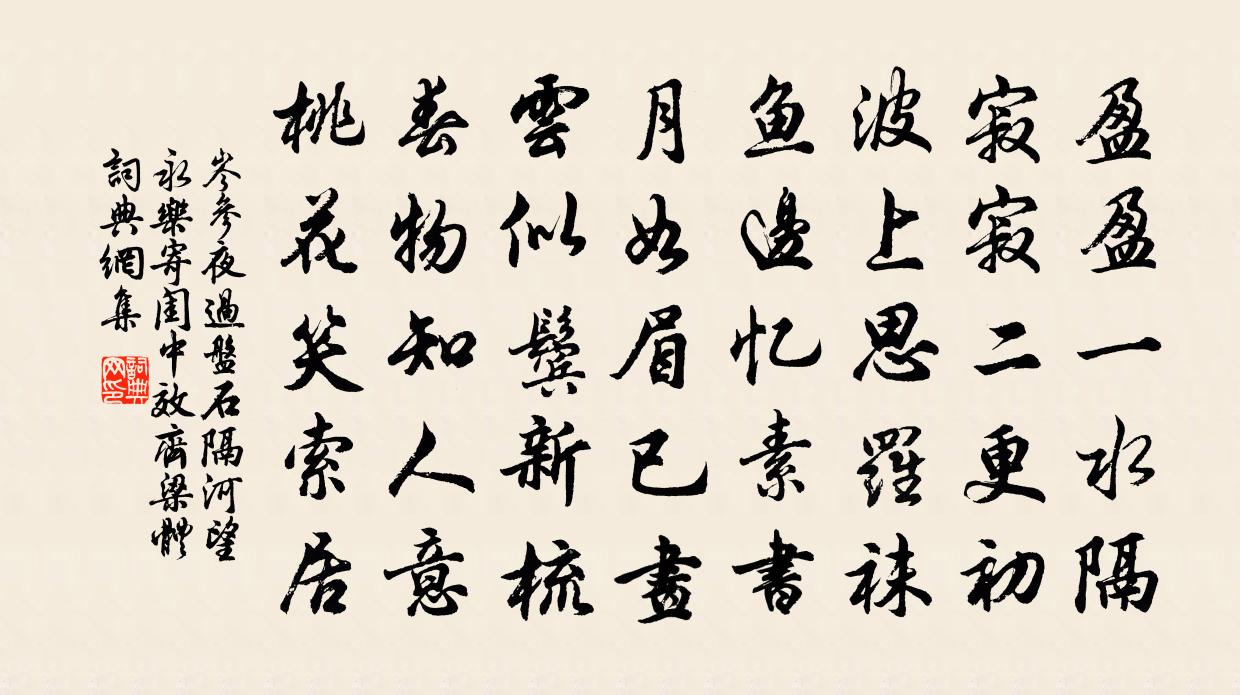 盈盈一水隔
寂寂二更初
波上思羅袜
魚邊忆素書
月如眉已畫
雲似鬢新梳
春物知人意
桃花笑索居
岑參夜過盤石隔河望
永樂寄闺中效齊梁體
詞典網集
詞典
网印